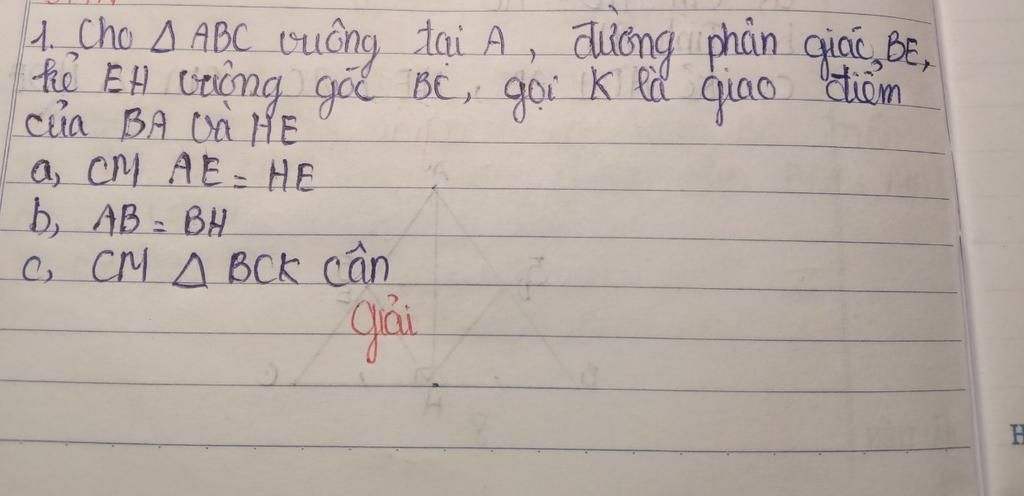 1. Cho △ ABC vuông tại A, đường phân giác BE,
kẻ EH vuông góc BC, gọi K là giao điểm
của BA và HE
a, CM AE = HE
b, AB = BH
c, CM △ BCK cân
giải
H